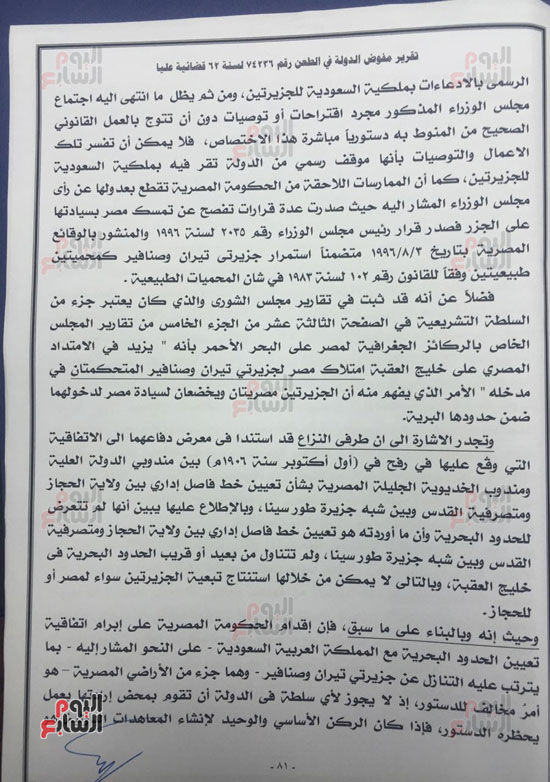 تقرير مفوض الدولة في الطعن رقم ٧٤٢٣٦ لسنة ٦٢ قضائية عليا
الرسمى بالادعاءات بملكية السعودية للجزيرتين، ومن ثم يظل ما انتهى اليه اجتماع
مجلس الوزراء المذكور مجرد اقتراحات أو توصيات دون أن تتوج بالعمل القانوني
الصحيح من المنوط به دستورياً مباشرة هذا الاختصاص، فلا يمكن أن تفسر تلك
الاعمال والتوصيات بأنها موقف رسمي من الدولة تقر فيه بملكية السعودية
للجزيرتين، كما أن الممارسات اللاحقة من الحكومة المصرية تقطع بعدولها عن رأى
مجلس الوزراء المشار اليه حيث صدرت عدة قرارات تفصح عن تمسك مصر بسيادتها
على الجزر فصدر قرار رئيس مجلس الوزراء رقم ٢٠٣٥ لسنة ١٩٩٦ والمنشور بالوقائع
المصرية بتاريخ ١٩٩٦/٨/٣ متضمناً استمرار جزيرتى تيران وصنافير كمحميتين
طبيعيتين وفقاً للقانون رقم ١٠٢ لسنة ١٩٨٣ في شان المحميات الطبيعية .
فضلاً عن أنه قد ثبت في تقارير مجلس الشورى والذي كان يعتبر جزء من
السلطة التشريعية في الصفحة الثالثة عشر من الجزء الخامس من تقارير المجلس
الخاص بالركائز الجغرافية لمصر على البحر الأحمر بأنه " يزيد في الامتداد
المصري على خليج العقبة امتلاك مصر لجزيرتي تيران وصنافير المتحكمتان في
مدخله " الأمر الذي يفهم منه أن الجزيرتين مصريتان ويخضعان لسيادة مصر لدخولهما
ضمن حدودها البرية.
وتجدر الاشارة الى ان طرفى النزاع قد استندا فى معرض دفاعهما الى الاتفاقية
التي وقع عليها في رفح في (أول أكتوبر سنة ١٩٠٦م) بين مندوبي الدولة العلية
ومندوب الخديوية الجليلة المصرية بشأن تعيين خط فاصل إداري بين ولاية الحجاز
ومتصرفية القدس وبين شبه جزيرة طور سينا، وبالإطلاع عليها يبين أنها لم تتعرض
للحدود البحرية وأن ما أوردته هو تعيين خط فاصل إداري بين ولاية الحجاز ومتصرفية
القدس وبين شبه جزيرة طور سينا، ولم تتناول من بعيد أو قريب الحدود البحرية فى
خليج العقبة، وبالتالى لا يمكن من خلالها استنتاج تبعية الجزيرتين سواء لمصر أو
للحجاز.
وحيث إنه وبالبناء على ما سبق، فإن إقدام الحكومة المصرية على إبرام اتفاقية
تعيين الحدود البحرية مع المملكة العربية السعودية - على النحو المشار إليه - بما
يترتب عليه التنازل عن جزيرتي تيران وصنافير - وهما جزء من الأراضي المصرية - هو
أمر مخالف للدستور، إذ لا يجوز لأي سلطة فى الدولة أن تقوم بمحض إرادتها بعمل
يحظره الدستور، فإذا كان الركن الأساسي والوحيد لإنشاء المعاهدات
- ٨١ -
اليوم السابع